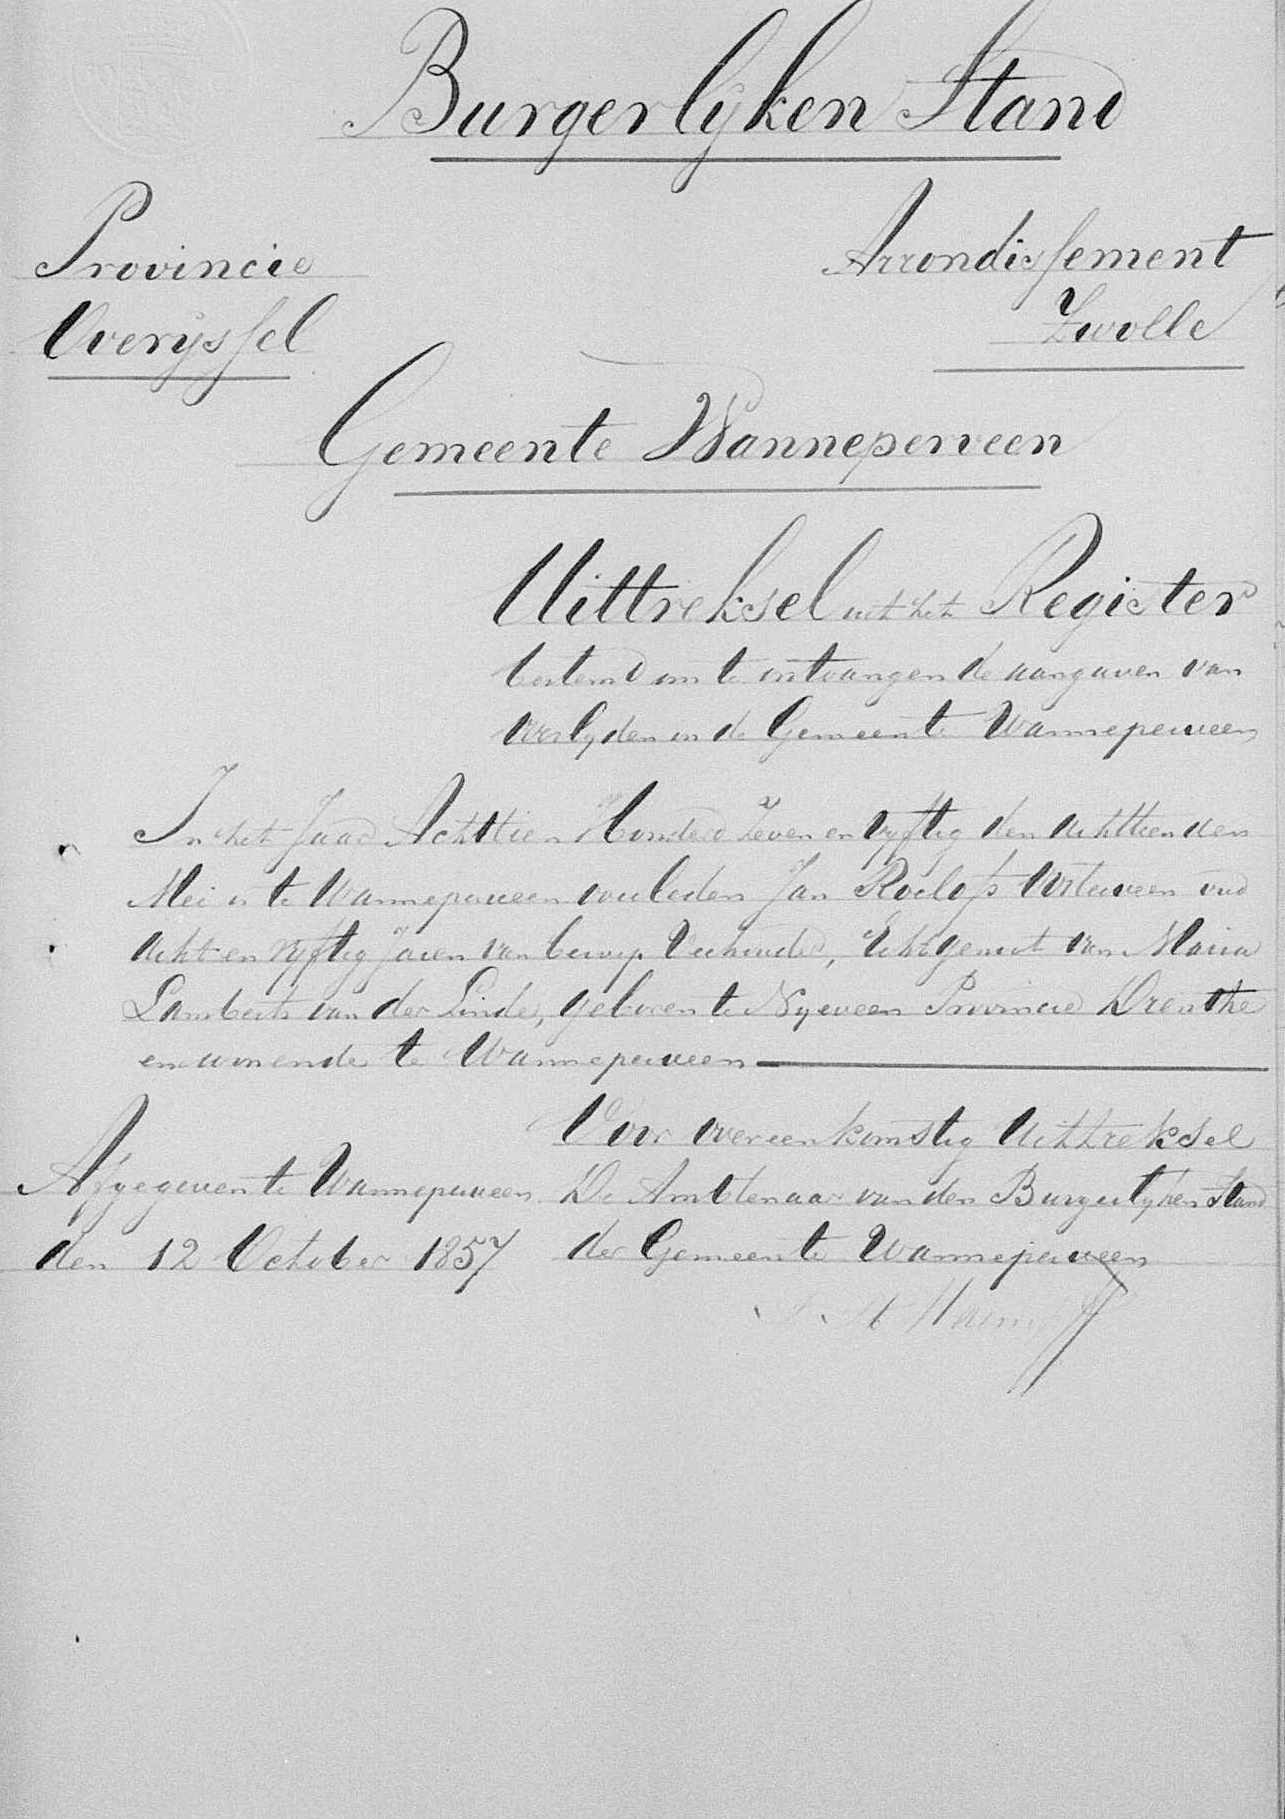 Burgerlijken Stand
Provincie
Overijssel
Arrondissement
Zwolle
Gemeente Wanneperveen
Uittreksel uit het Register
bestemd om te ontvangen de aangaven van
overlijden in de Gemeente Wanneperveen
In het Jaar Achttien Honderd Zeven en vyftig den achttienden
Mei is te Wanneperveen overleden Jan Roelofs oud
acht en vyftig jaren van beroep Veehouder, Echtgenoot van Maria
Lamberts van der Linde, geboren te Nyeveen Provincie Drenthe
en wonende te Wanneperveen
Voor overeenkomstig Uittreksel
Afgegeven te Wanneperveen De Ambtenaar van den Burgerlyken Stand
den 12 October 1857 der Gemeente Wanneperveen